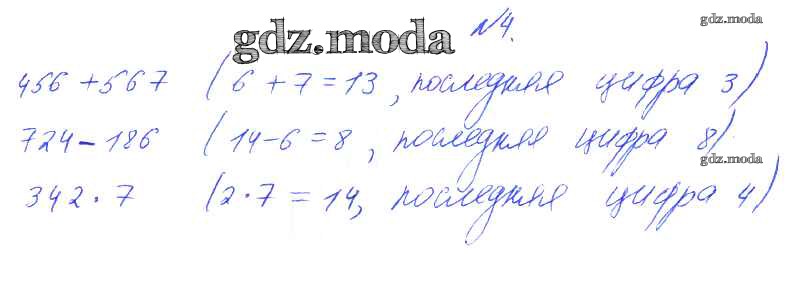 №4.
gdz.moda
gdz.moda
456 + 567 (6 + 7 = 13, последняя цифра 3)
724 - 186 (14 - 6 = 8, последняя цифра 8)
gdz.moda
342 · 7 (2 · 7 = 14, последняя цифра 4)